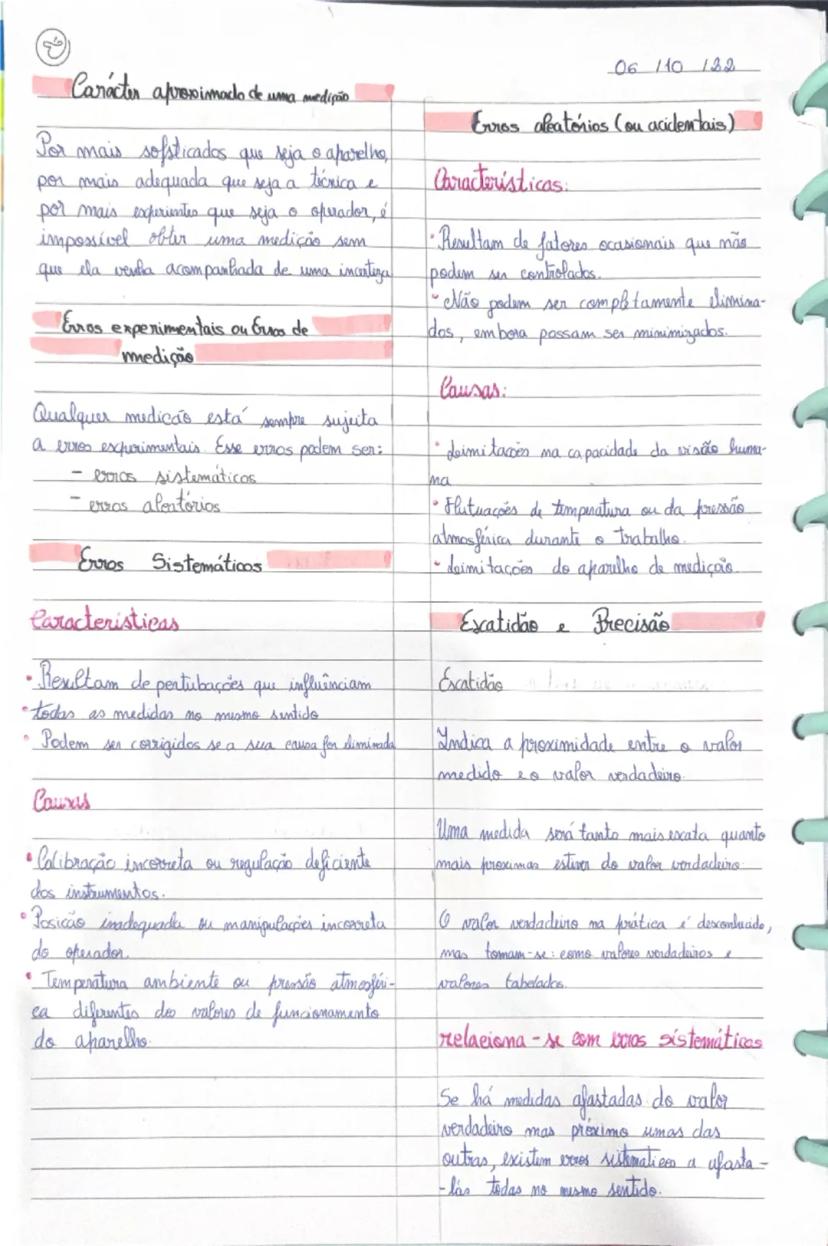 06/10/22
Carácter aproximado de uma medição
Por mais sofsticados que seja o aparelho,
por mais adequada que seja a técnica e
por mais experientes que seja o operador, é
impossível obter uma medição sem
que ela venha acompanhada de uma incerteza
Erros experimentais ou Erros de
medição
Qualquer medicão está sempre sujeita
a erros experimentais. Esse erros podem ser:
- erros sistemáticos
- erros aleatórios
Erros Sistemáticos
Caracteristicas
• Resultam de pertubações que influênciam
• todas as medidas no mesmo sentido
• Podem ser corrigidos se a sua causa for eliminada
Causas
• Calibração incorreta ou regulação deficiente
dos instrumentos.
• Posicão inadequada ou manipulações incorreta
do operador.
• Temperatura ambiente ou pressão atmosféri-
ca diferentes dos valores de funcionamento
do aparelho.
Erros aleatórios (ou acidentais)
Características:
• Resultam de fatores ocasionais que não
podem ser controlados.
• Não podem ser completamente elimina-
dos, embora possam ser minimizados.
Causas:
• Limitações na capacidade da visão huma-
na
• Flutuações de temperatura ou da pressão
atmosférica durante o trabalho.
• Limitações do aparelho de medição.
Escatidão e Precisão
Escatidão
Indica a proximidade entre o valor
medido e o valor verdadeiro.
Uma medida será tanto mais exata quanto
mais proximas estiver do valor verdadeiro.
O valor verdadeiro na prática é desconhecido,
mas tomam-se: como valores verdadeiros e
valores tabelados.
relaciona-se com erros sistemáticos
Se há medidas afastadas do valor
verdadeiro mas próximo umas das
outras, existem erros sistemáticos a afasta-
-las todas no mesmo sentido.